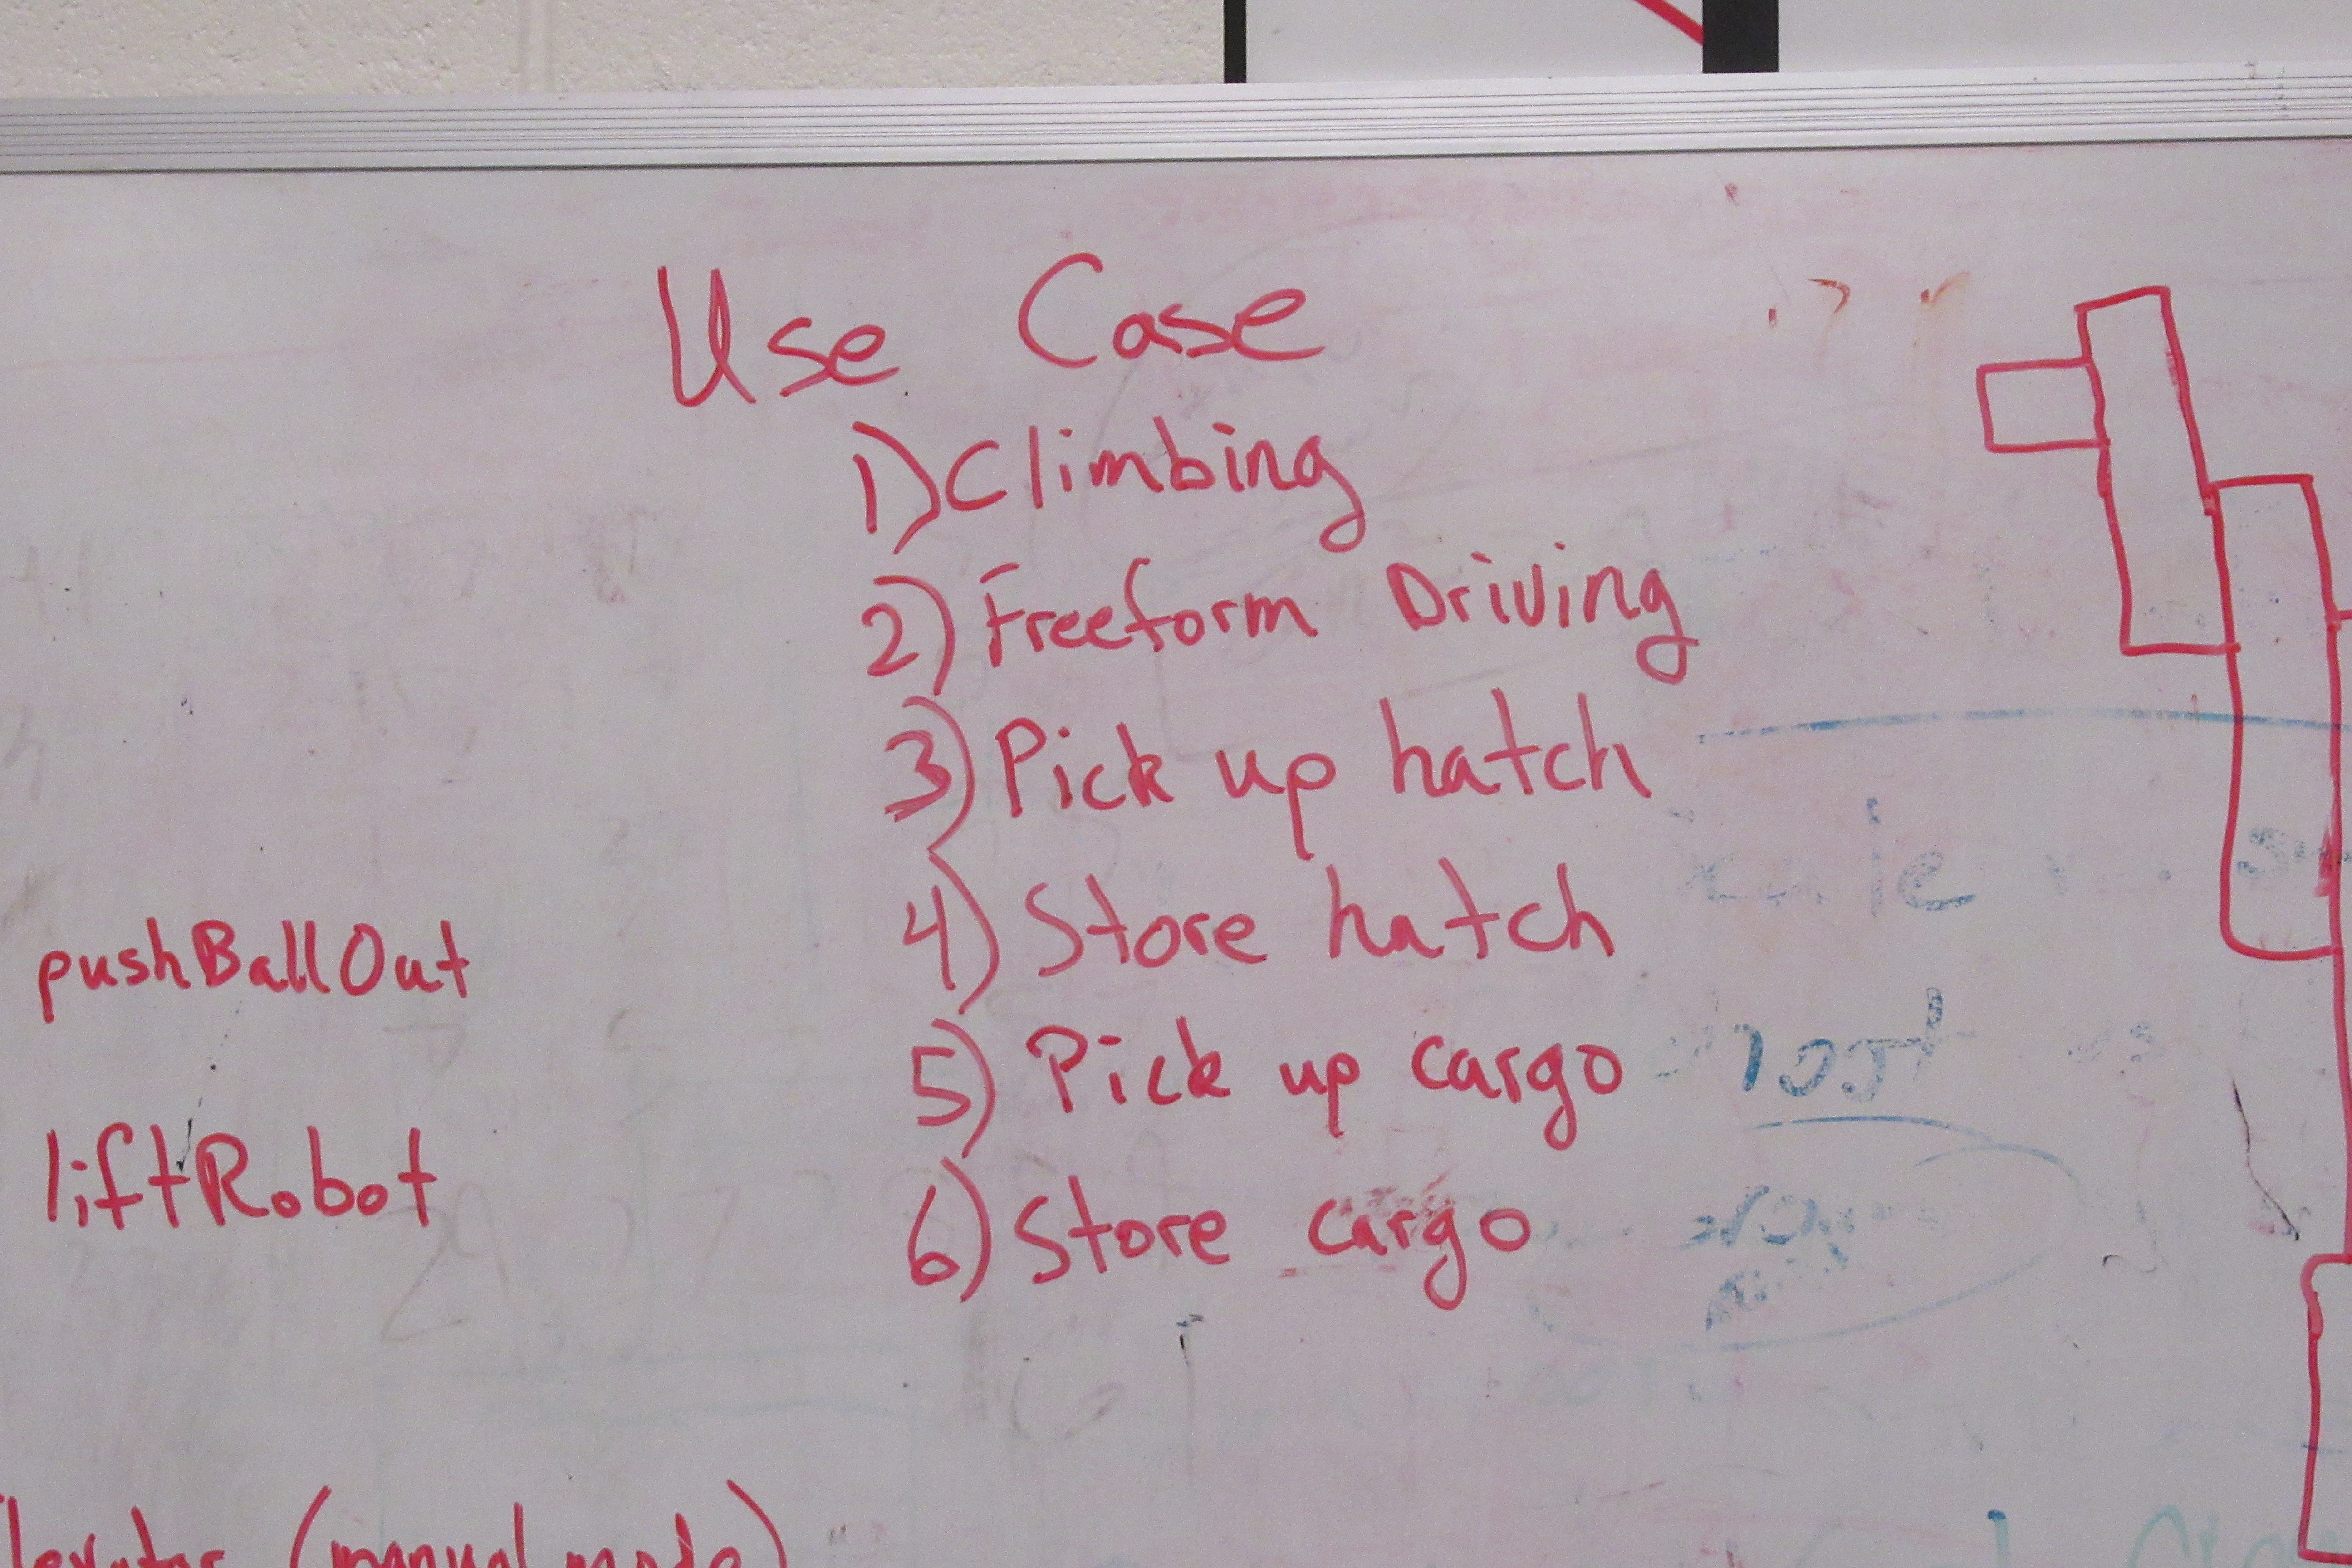 Use Case
1) Climbing
2) Freeform Driving
3) Pick up hatch
4) Store hatch
5) Pick up cargo
6) Store cargo
pushBallOut
liftRobot
(manual mode)